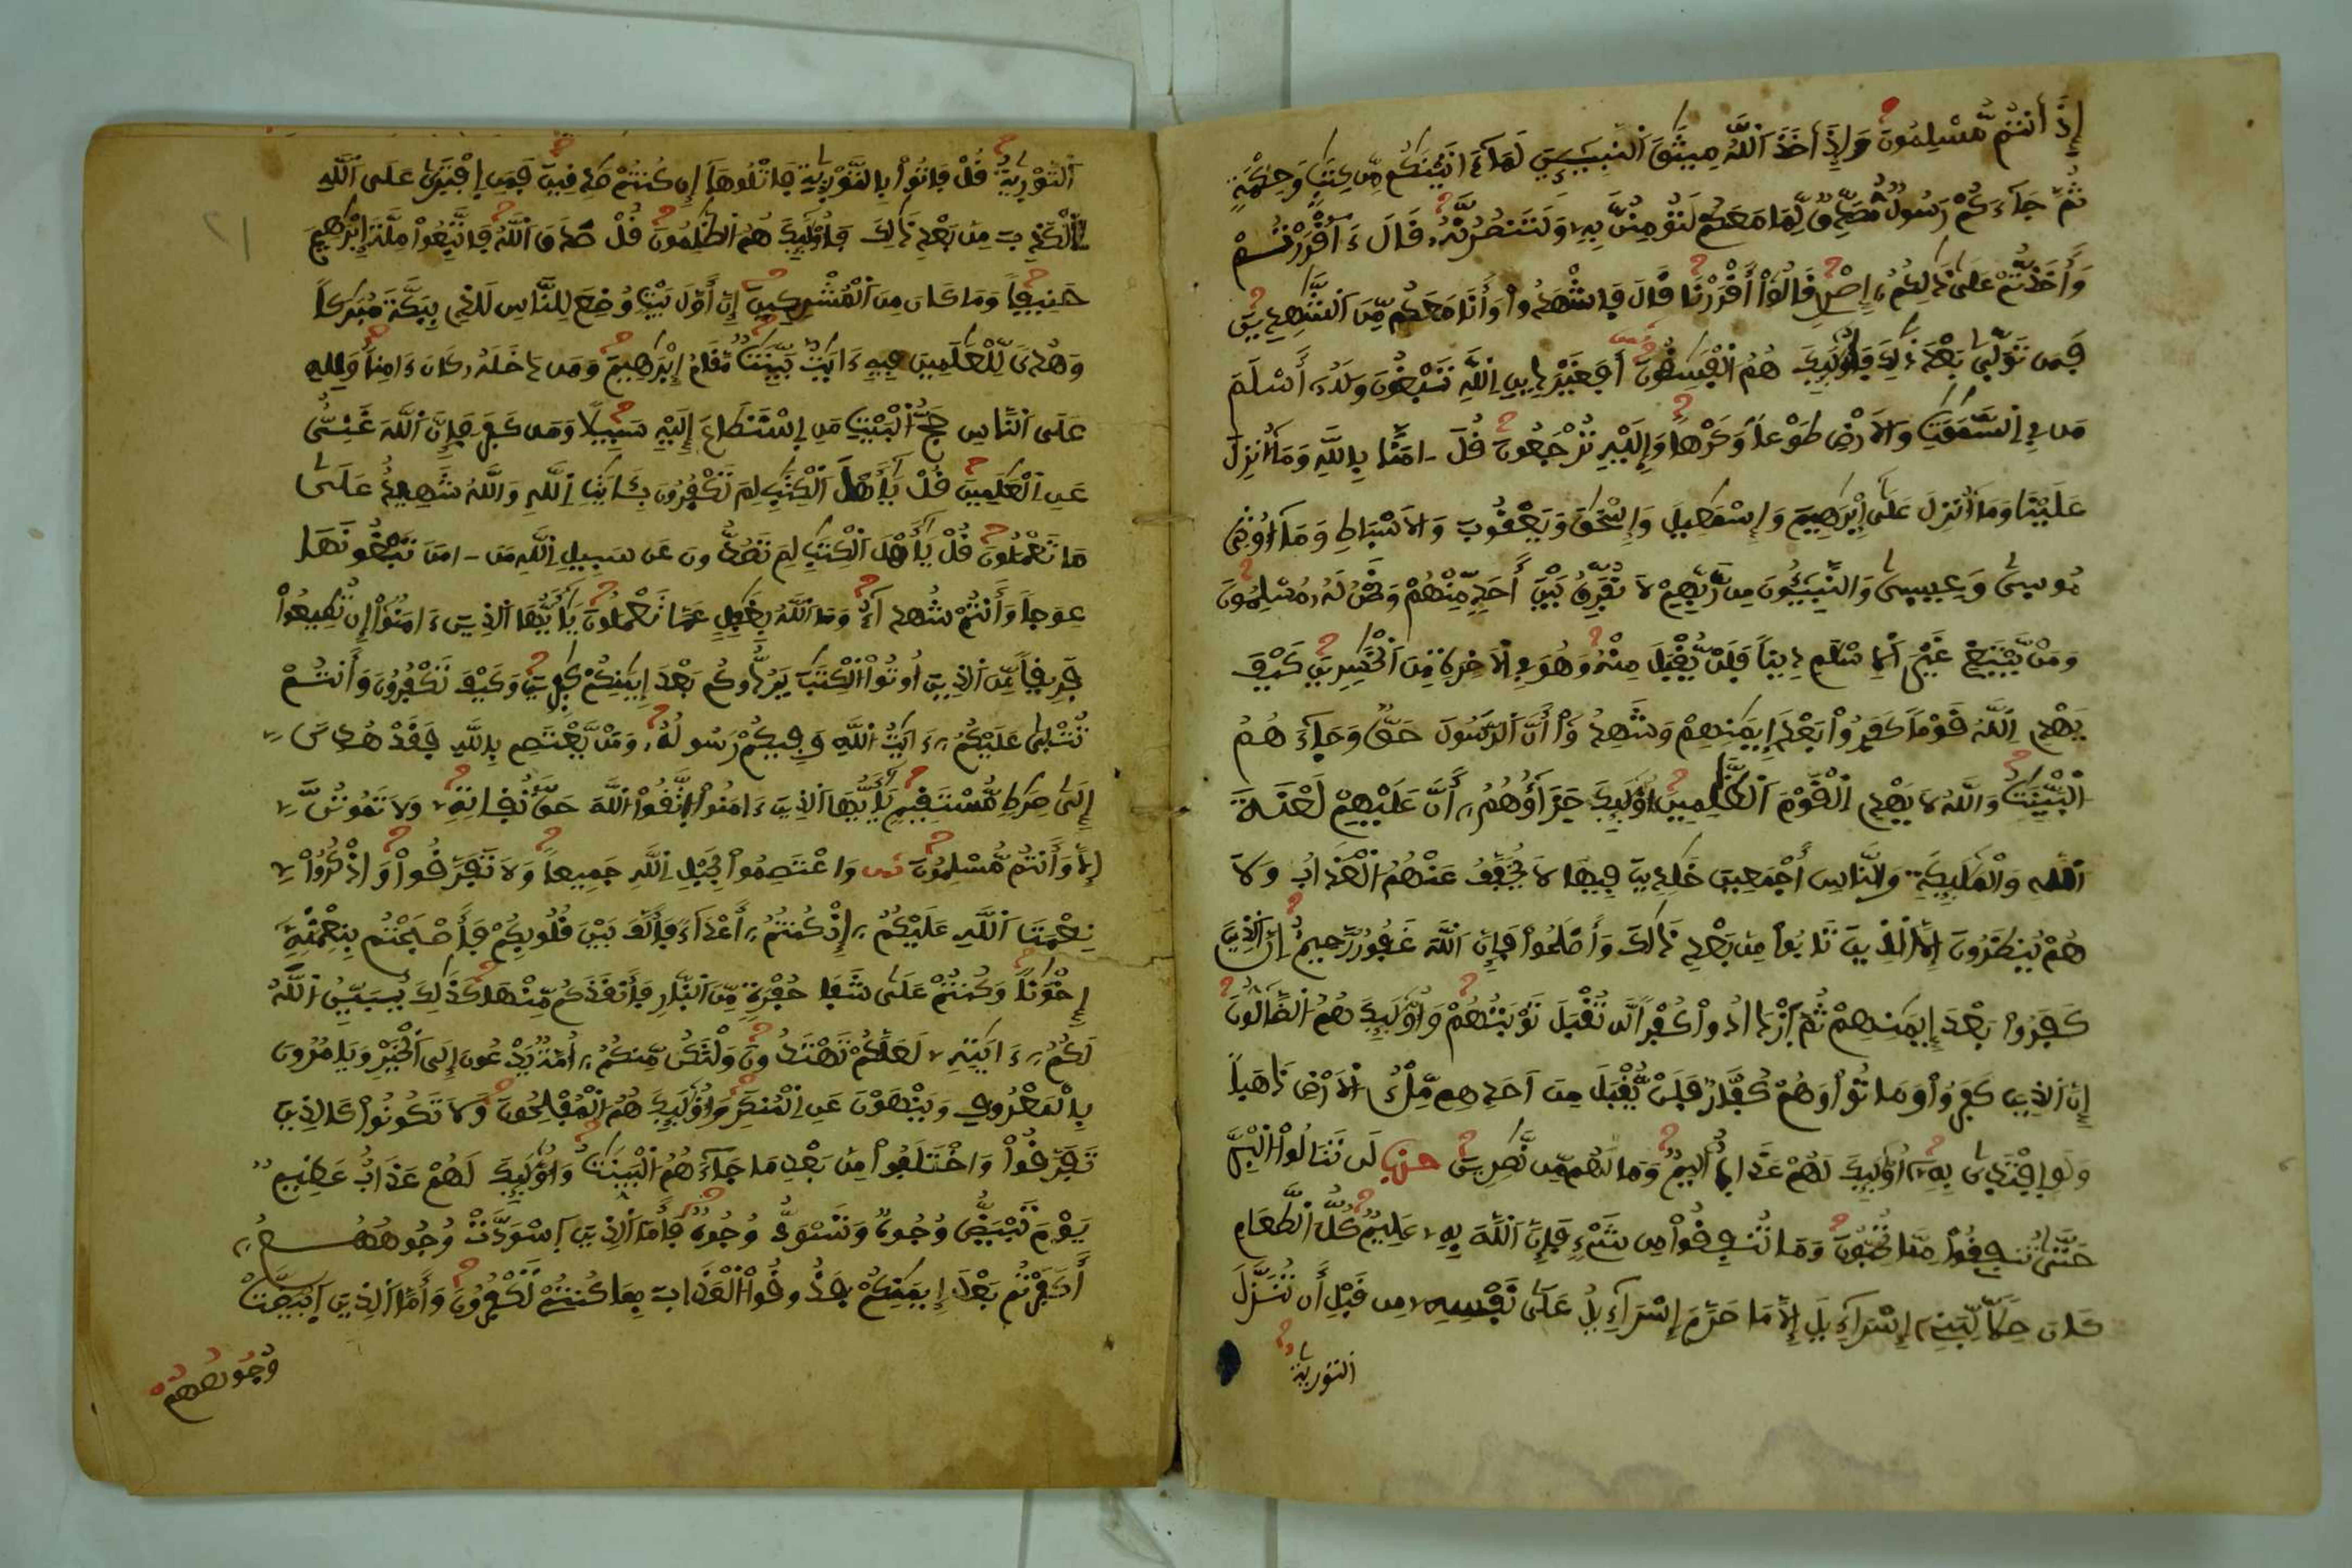 إِذَ انتُم مُّسْلِمُونَ وَإِذَ اَخَذَ اَللَّهُ مِيثَٰقَ اَلنَّبِيٓـِٕينَ لَمَآ ءَاتَيْنَٰكُم مِّن كِتَٰبٍ وَحِكْمَةٍ
ثُمَّ جَآءَكُمْ رَسُولٌ مُّصَدِّقٌ لِّمَا مَعَكُمْ لَتُومِنُنَّ بِهِۦ وَلَتَنصُرُنَّهُۥ قَالَ ءَآقْرَرْتُمْ
وَأَخَذتُّمْ عَلَىٰ ذَٰلِكُمُۥٓ إِصْرِے قَالُوٓاْ أَقْرَرْنَا قَالَ فَاشْهَدُواْ وَأَنَا مَعَكُم مِّنَ اَلشَّٰهِدِينَ
فَمَن تَوَلَّىٰ بَعْدَ ذَٰلِكَ فَأُوْلَٰٓئِكَ هُمُ اُلْفَٰسِقُونَ أَفَغَيْرَ دِينِ اِللَّهِ تَبْغُونَ وَلَهُۥٓ أَسْلَمَ
مَن فِے اِلسَّمَٰوَٰتِ وَالَارْضِ طَوْعاً وَكَرْهاً وَإِلَيْهِ تُرْجَعُونَ قُلَ ـ امَنَّا بِاللَّهِ وَمَآ أُنزِلَ
عَلَيْنَا وَمَآ أُنزِلَ عَلَىٰٓ إِبْرَٰهِيمَ وَإِسْمَٰعِيلَ وَإِسْحَٰقَ وَيَعْقُوبَ وَالَاسْبَاطِ وَمَآ أُوتِيَ
مُوسَىٰ وَعِيسَىٰ وَالنَّبِيٓـُٔونَ مِن رَّبِّهِمْ لَا نُفَرِّقُ بَيْنَ أَحَدٍ مِّنْهُمْ وَنَحْنُ لَهُۥ مُسْلِمُونَ
وَمَنْ يَّبْتَغِ غَيْرَ اَلِاسْلَٰمِ دِيناً فَلَنْ يُّقْبَلَ مِنْهُ وَهُوَ فِے اِلَاخِرَةِ مِنَ اَلْخَٰسِرِينَ كَيْفَ
يَهْدِے اِللَّهُ قَوْماً كَفَرُواْ بَعْدَ إِيمَٰنِهِمْ وَشَهِدُوٓاْ أَنَّ اَلرَّسُولَ حَقٌّ وَجَآءَهُمُ
اُلْبَيِّنَٰتُ وَاللَّهُ لَا يَهْدِے اِلْقَوْمَ اَلظَّٰلِمِينَ أُوْلَٰٓئِكَ جَزَآؤُهُمُۥٓ أَنَّ عَلَيْهِمْ لَعْنَةَ
اَللَّهِ وَالْمَلَٰٓئِكَةِ وَالنَّاسِ أَجْمَعِينَ خَٰلِدِينَ فِيهَا لَا يُخَفَّفُ عَنْهُمُ اُلْعَذَابُ وَلَا
هُمْ يُنظَرُونَ إِلَّا اَلذِينَ تَابُواْ مِنۢ بَعْدِ ذَٰلِكَ وَأَصْلَحُواْ فَإِنَّ اَللَّهَ غَفُورٌ رَّحِيمٌ إِنَّ اَلذِينَ
كَفَرُواْ بَعْدَ إِيمَٰنِهِمْ ثُمَّ اَزْدَادُواْ كُفْراً لَّن تُقْبَلَ تَوْبَتُهُمْ وَأُوْلَٰٓئِكَ هُمُ اُلضَّآلُّونَ
إِنَّ اَلذِينَ كَفَرُواْ وَمَاتُواْ وَهُمْ كُفَّارٌ فَلَنْ يُّقْبَلَ مِنَ اَحَدِهِم مِّلْءُ اُلَارْضِ ذَهَباً
وَلَوِ اِفْتَدَىٰ بِهِۦٓ أُوْلَٰٓئِكَ لَهُمْ عَذَابٌ اَلِيمٌ وَمَا لَهُم مِّن نَّٰصِرِينَ حزب لَن تَنَالُواْ اُلْبِرَّ
حَتَّىٰ تُنفِقُواْ مِمَّا تُحِبُّونَ وَمَا تُنفِقُواْ مِن شَيْءٍ فَإِنَّ اَللَّهَ بِهِۦ عَلِيمٌ كُلُّ اُلطَّعَامِ
كَانَ حِلًّا لِّبَنِےٓ إِسْرَآءِيلَ إِلَّا مَا حَرَّمَ إِسْرَآءِيلُ عَلَىٰ نَفْسِهِۦ مِن قَبْلِ أَن تُنَزَّلَ
اَلتَّوْرَيٰةُ
اَلتَّوْرَيٰةُ قُلْ فَاتُواْ بِالتَّوْرَيٰةِ فَاتْلُوهَآ إِن كُنتُمْ صَٰدِقِينَ فَمَنِ اِفْتَرَىٰ عَلَى اَللَّهِ
اِلْكَذِبَ مِنۢ بَعْدِ ذَٰلِكَ فَأُوْلَٰٓئِكَ هُمُ اُلظَّٰلِمُونَ قُلْ صَدَقَ اَللَّهُ فَاتَّبِعُواْ مِلَّةَ إِبْرَٰهِيمَ
حَنِيفاً وَمَا كَانَ مِنَ اَلْمُشْرِكِينَ إِنَّ أَوَّلَ بَيْتٍ وُضِعَ لِلنَّاسِ لَلذِے بِبَكَّةَ مُبَٰرَكاً
وَهُدىً لِّلْعَٰلَمِينَ فِيهِ ءَايَٰتٌ بَيِّنَٰتٌ مَّقَامُ إِبْرَٰهِيمَ وَمَن دَخَلَهُۥ كَانَ ءَامِناً وَلِلهِ
عَلَى اَلنَّاسِ حَجُّ اُلْبَيْتِ مَنِ اِسْتَطَاعَ إِلَيْهِ سَبِيلًا وَمَن كَفَرَ فَإِنَّ اَللَّهَ غَنِيٌّ
عَنِ اِلْعَٰلَمِينَ قُلْ يَٰٓأَهْلَ اَلْكِتَٰبِ لِمَ تَكْفُرُونَ بِـَٔايَٰتِ اِللَّهِ وَاللَّهُ شَهِيدٌ عَلَىٰ
مَا تَعْمَلُونَ قُلْ يَٰٓأَهْلَ اَلْكِتَٰبِ لِمَ تَصُدُّونَ عَن سَبِيلِ اِللَّهِ مَنَ ـ امَنَ تَبْغُونَهَا
عِوَجاً وَأَنتُمْ شُهَدَآءُ وَمَا اَللَّهُ بِغَٰفِلٍ عَمَّا تَعْمَلُونَ يَٰٓأَيُّهَا اَلذِينَ ءَامَنُوٓاْ إِن تُطِيعُواْ
فَرِيقاً مِّنَ اَلذِينَ أُوتُواْ اُلْكِتَٰبَ يَرُدُّوكُم بَعْدَ إِيمَٰنِكُمْ كَٰفِرِينَ وَكَيْفَ تَكْفُرُونَ وَأَنتُمْ
تُتْلَىٰ عَلَيْكُمُۥٓ ءَايَٰتُ اُللَّهِ وَفِيكُمْ رَسُولُهُۥ وَمَنْ يَّعْتَصِم بِاللَّهِ فَقَدْ هُدِيَ
إِلَىٰ صِرَٰطٍ مُّسْتَقِيمٍ يَٰٓأَيُّهَا اَلذِينَ ءَامَنُواْ اُتَّقُواْ اُللَّهَ حَقَّ تُقَاتِهِۦ وَلَا تَمُوتُنَّ
إِلَّا وَأَنتُم مُّسْلِمُونَ ثمن وَاعْتَصِمُواْ بِحَبْلِ اِللَّهِ جَمِيعاً وَلَا تَفَرَّقُواْ وَاذْكُرُواْ
نِعْمَتَ اَللَّهِ عَلَيْكُمُۥٓ إِذْ كُنتُمُۥٓ أَعْدَآءً فَأَلَّفَ بَيْنَ قُلُوبِكُمْ فَأَصْبَحْتُم بِنِعْمَتِهِۦٓ
إِخْوَٰناً وَكُنتُمْ عَلَىٰ شَفَا حُفْرَةٍ مِّنَ اَلنَّارِ فَأَنقَذَكُم مِّنْهَا كَذَٰلِكَ يُبَيِّنُ اُللَّهُ
لَكُمُۥٓ ءَايَٰتِهِۦ لَعَلَّكُمْ تَهْتَدُونَ وَلْتَكُن مِّنكُمُۥٓ أُمَّةٌ يَدْعُونَ إِلَى اَلْخَيْرِ وَيَامُرُونَ
بِالْمَعْرُوفِ وَيَنْهَوْنَ عَنِ اِلْمُنكَرِ وَأُوْلَٰٓئِكَ هُمُ اُلْمُفْلِحُونَ وَلَا تَكُونُواْ كَالذِينَ
تَفَرَّقُواْ وَاخْتَلَفُواْ مِنۢ بَعْدِ مَا جَآءَهُمُ اُلْبَيِّنَٰتُ وَأُوْلَٰٓئِكَ لَهُمْ عَذَابٌ عَظِيمٌ
يَوْمَ تَبْيَضُّ وُجُوهٌ وَتَسْوَدُّ وُجُوهٌ فَأَمَّا اَلذِينَ اَسْوَدَّتْ وُجُوهُهُمُۥٓ
أَكَفَرْتُم بَعْدَ إِيمَٰنِكُمْ فَذُوقُواْ اُلْعَذَابَ بِمَا كُنتُمْ تَكْفُرُونَ وَأَمَّا اَلذِينَ اَبْيَضَّتْ
وُجُوهُهُمْ